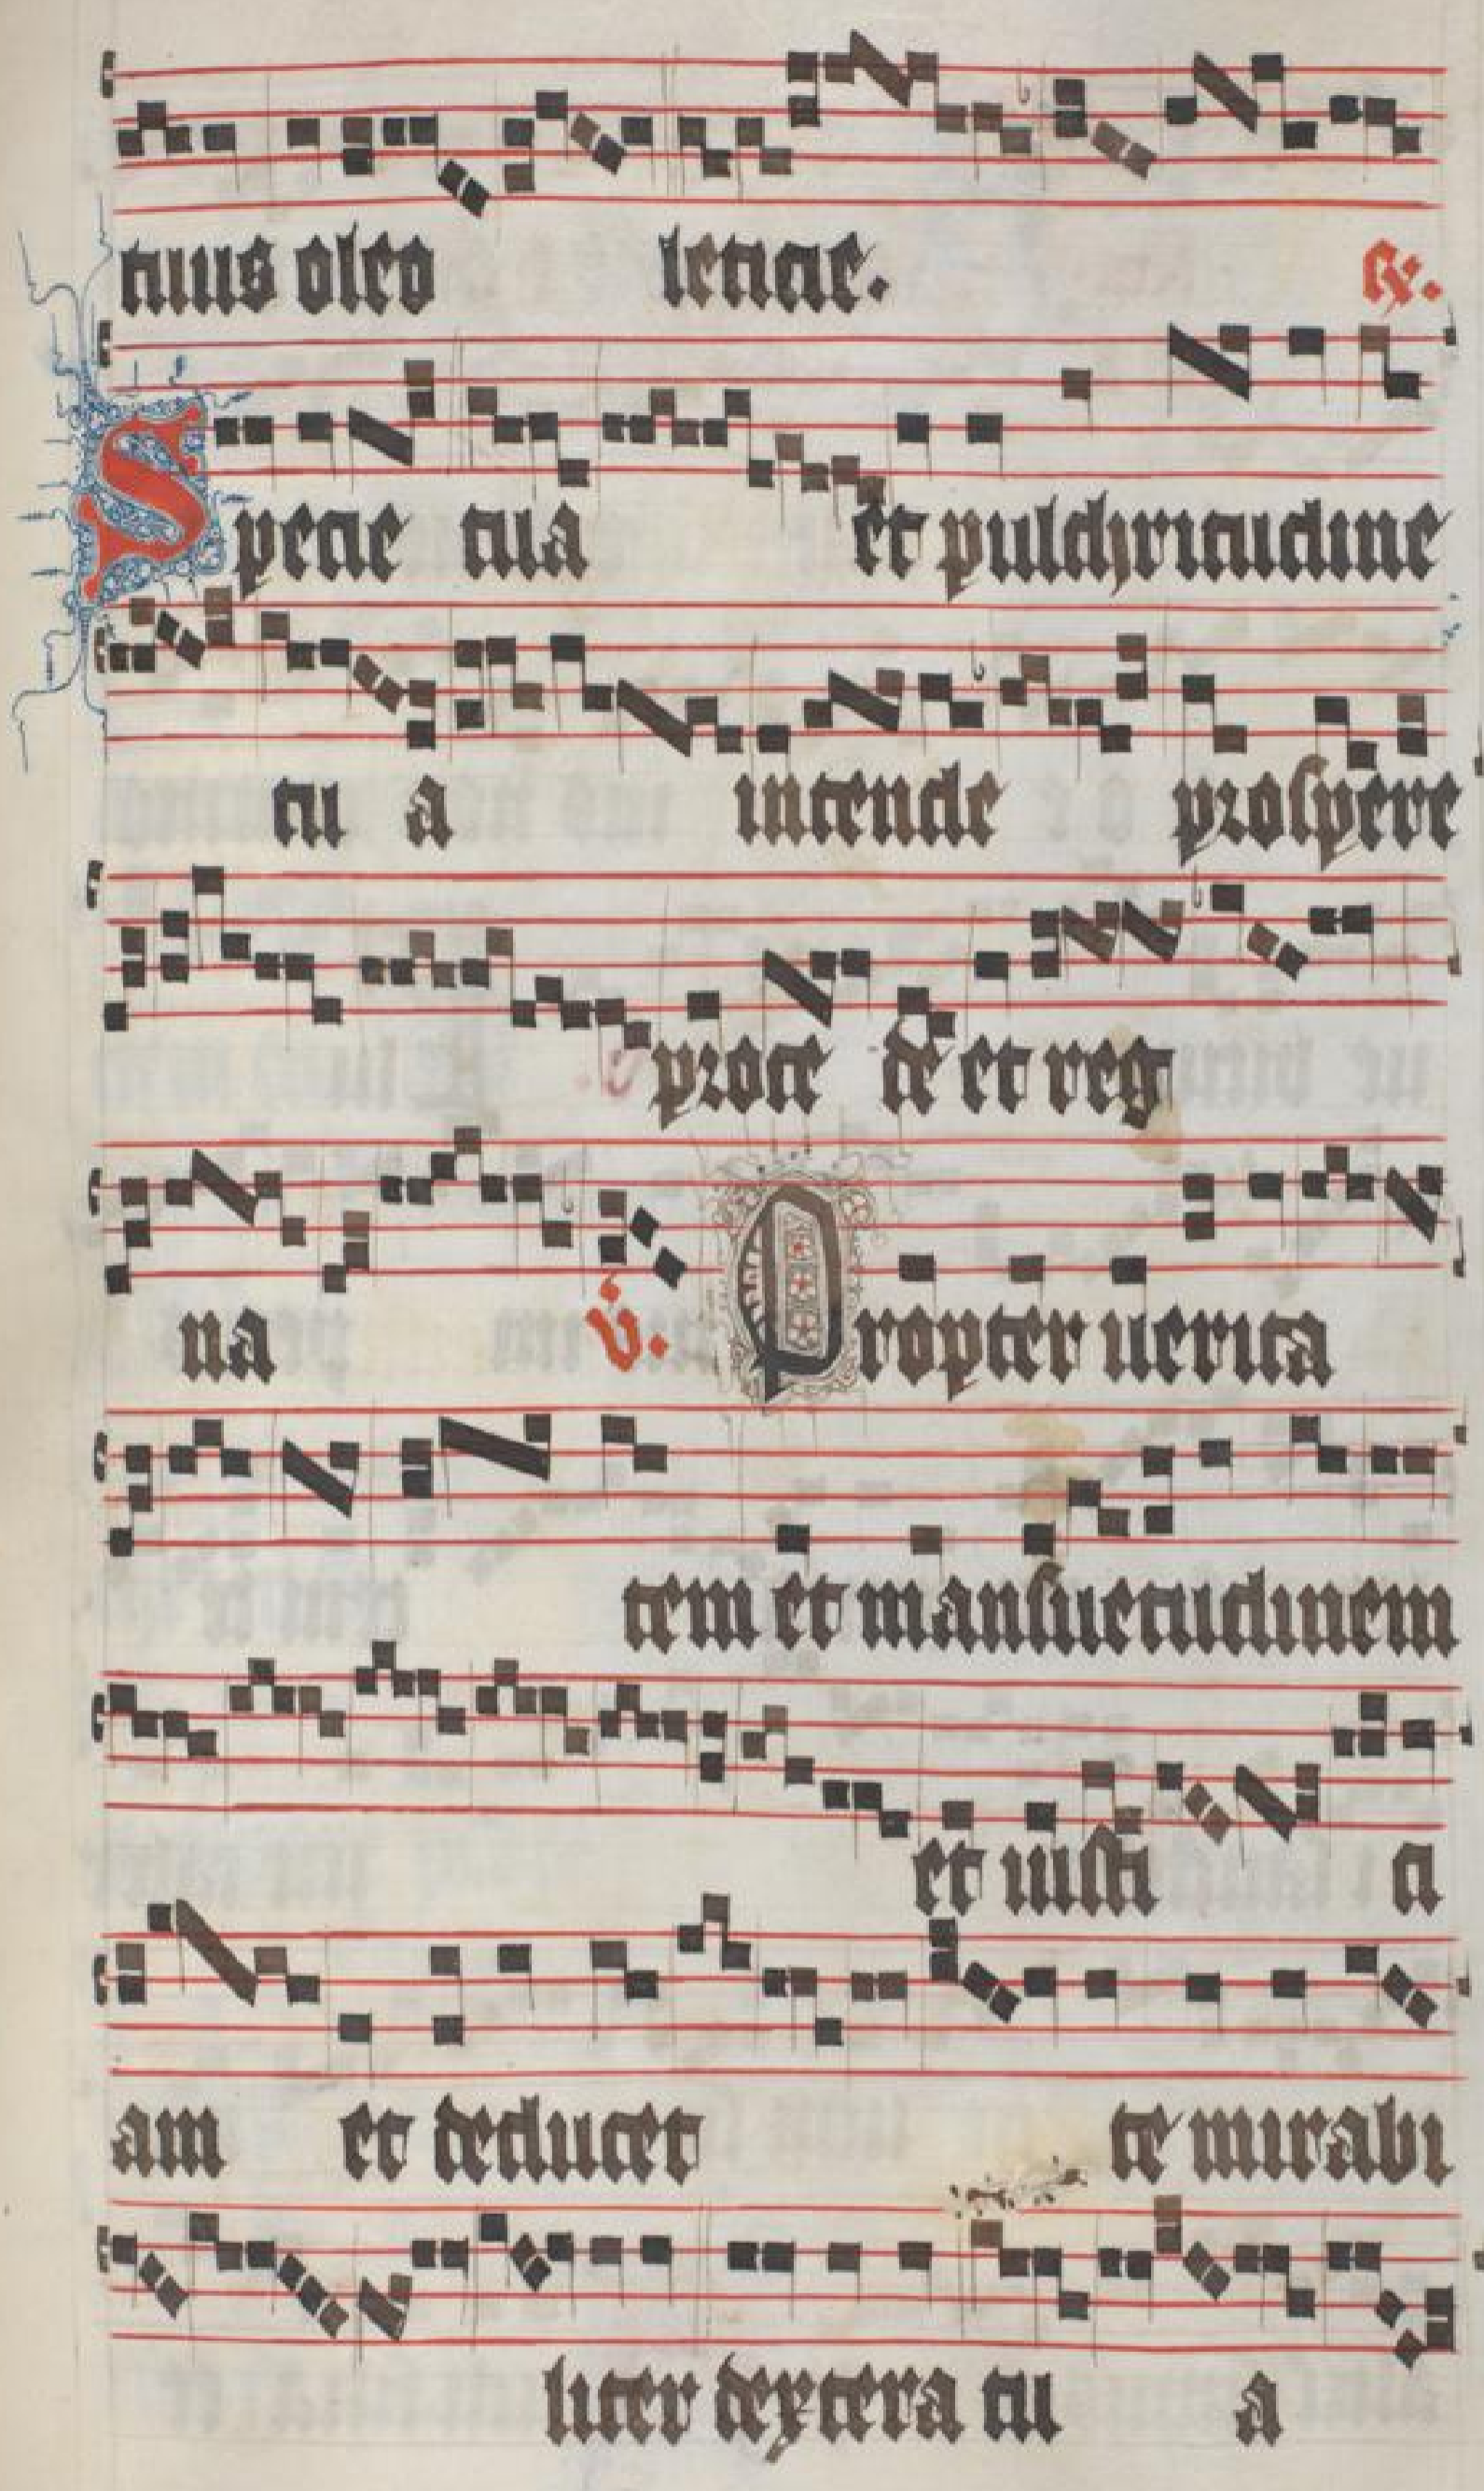 tuus oleo leticie. R.
Specie tua et pulchritudine
tu a intende prospere
proce de et reg
na V. Propter uerita
tem et mansuetudinem
et iusti ci
am et deducet te mirabi
liter dextera tu a